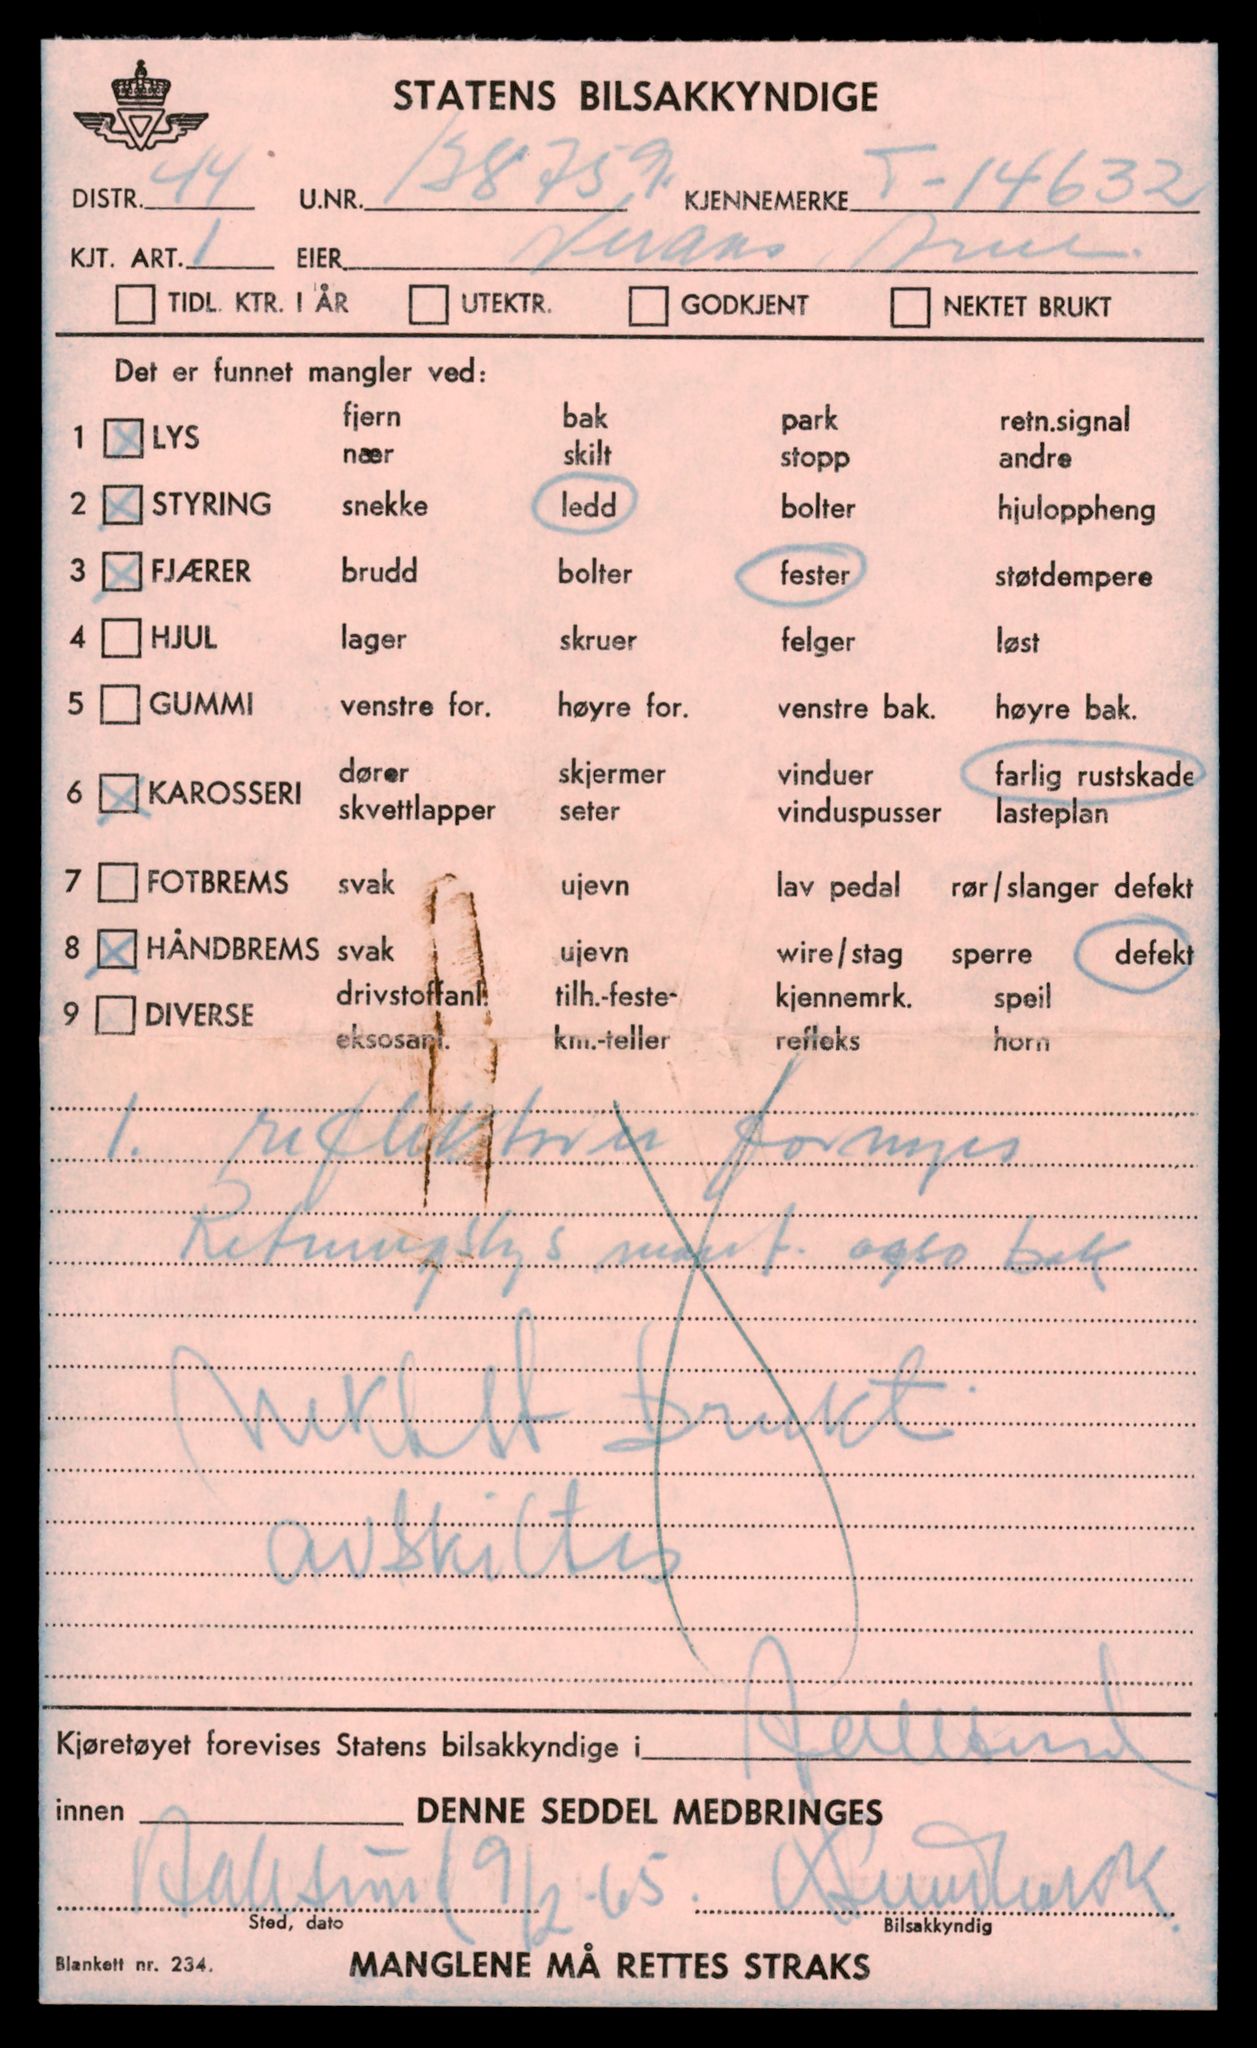 STATENS BILSAKKYNDIGE
DISTR. 44 U.NR. 138759 KJENNEMERKE T-14632
KJT. ART. 1 EIER
TIDL. KTR. I ÅR UTEKTR. GODKJENT NEKTET BRUKT
Det er funnet mangler ved:
fjern bak park retn.signal
1 X LYS
nær skilt stopp andre
2 X STYRING snekke ledd bolter hjuloppheng
3 X FJÆRER brudd bolter fester støtdempere
4 HJUL lager skruer felger løst
5 GUMMI venstre for. høyre for. venstre bak. høyre bak.
dører skjermer vinduer farlig rustskade
6 X KAROSSERI
skvettlapper seter vinduspusser lasteplan
7 FOTBREMS svak ujevn lav pedal rør/slanger defekt
8 X HÅNDBREMS svak ujevn wire/stag sperre defekt
drivstoffanl. tilh.-feste- kjennemrk. speil
9 DIVERSE
eksosanl. km.-teller refleks horn
1. reflektorer fornyes
Retningslys mont. også bak
nektet brukt
avskiltes
Kjøretøyet forevises Statens bilsakkyndige i
innen DENNE SEDDEL MEDBRINGES
9/2-65.
Sted, dato Bilsakkyndig
Blankett nr. 234. MANGLENE MÅ RETTES STRAKS